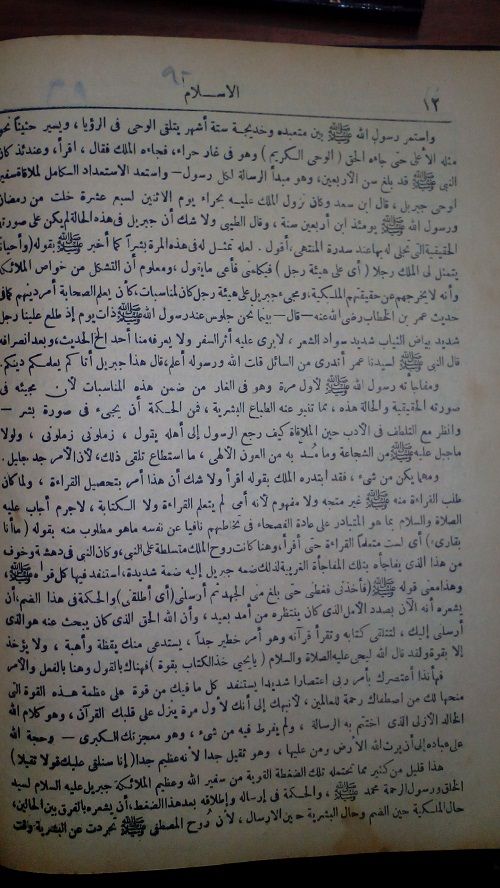 ٩٢
١٢
الاسلام
واستمر رسول الله ﷺ بين متعبده وخديجة ستة أشهر يتلقى الوحى فى الرؤيا ، ويسير حثيثا نحو
مثله الأعلى حتى جاءه الحق ( الوحى الكريم ) وهو فى غار حراء ، فجاءه الملك فقال ، اقرأ ، وعندئذ كان
النبى ﷺ قد بلغ سن الأربعين ، وهو مبدأ الرسالة لكل رسول — واستعد الاستعداد الكامل لملاقاة سفير
الوحى جبريل ، قال ابن سعد وكان نزول الملك عليه بحراء يوم الاثنين لسبع عشرة خلت من رمضان
ورسول الله ﷺ يومئذ ابن أربعين سنة ، وقال الطيبى ولا شك أن جبريل فى هذه الحالة لم يكن على صورته
الحقيقية التى تجلى له بها عند سدرة المنتهى ، أقول . لعله تمثل له فى هذه المرة بشراً كما أخبر ﷺ بقوله ( وأحيانا
يتمثل لى الملك رجلا ( أى على هيئة رجل ) فيكلمنى فأعى ما يقول ، ومعلوم أن التشكل من خواص الملائكة
وأنه لا يخرجهم عن حقيقتهم الملكية ، ومجىء جبريل على هيئة رجل كان لمناسبات ، كأن يعلم الصحابة أمر دينهم كما فى
حديث عمر بن الخطاب رضى الله عنه — قال — بينما نحن جلوس عند رسول الله ﷺ ذات يوم إذ طلع علينا رجل
شديد بياض الثياب شديد سواد الشعر ، لا يرى عليه أثر السفر ولا يعرفه منا أحد الخ الحديث ، وبعد انصرافه
قال النبى ﷺ لسيدنا عمر أتدرى من السائل قلت الله ورسوله أعلم ، قال هذا جبريل أتاكم يعلمكم دينكم .
ومفاجأته رسول الله ﷺ لأول مرة وهو فى الغار من ضمن هذه المناسبات لأن مجيئه فى
صورته الحقيقية والحالة هذه ، مما تنبو عنه الطباع البشرية ، فمن الحكمة أن يجىء فى صورة بشر —
وانظر مع التلطف فى الأدب حين الملاقاة كيف رجع الرسول إلى أهله يقول ، زملونى زملونى ، ولولا
ماجبل عليه ﷺ من الشجاعة وما مُد به من العون الألهى ، ما استطاع تلقى ذلك ، لأن الأمر جد جليل .
ومهما يكن من شىء ، فقد ابتدره الملك بقوله اقرأ ولا شك أن هذا أمر بتحصيل القراءة ، ولما كان
طلب القراءة منه ﷺ غير متجه ولا مفهوم لأنه أمى لم يتعلم القراءة ولا الكتابة ، لاجرم أجاب عليه
الصلاة والسلام بما هو المتبادر على عادة الفصحاء فى تخاطبهم نافيا عن نفسه ماهو مطلوب منه بقوله ( ما أنا
بقارىء ) أى لست متعلما القراءة حتى أقرأ ، وهنا كانت روح الملك متسلطة على النبى ، وكان النبى فى دهشة وخوف
من هذا الذى يفاجأه بتلك المفاجأة الغريبة لذلك ضمه جبريل إليه ضمة شديدة ، استنفد فيها كل قواه ﷺ ،
وهذا معنى قوله ﷺ ( فأخذنى فغطنى حتى بلغ منى الجهد ثم أرسلنى ( أى أطلقنى ) والحكمة فى هذا الضم ، أن
يشعره أنه الآن بصدد الأمل الذى كان ينتظره من أمد بعيد ، وأن الله الحق الذى كان يبحث عنه هو الذى
أرسلنى إليك ، لتتلقى كتابه وتقرأ قرآنه وهو أمر خطير جداً ، يستدعى منك يقظة وأهبة ، ولا يؤخذ
إلا بقوة ولقد قال الله ليحى عليه الصلاة والسلام ( يايحيى خذ الكتاب بقوة ) فهناك بالقول وهنا بالفعل والأمر
فهأنذا أعتصرك بأمر ربى اعتصارا شديدا يستنفد كل مافيك من قوة على عظمة هذه القوة التى
منحها لك من اصطفاك رحمة للعالمين ، لأنبهك إلى أنك لأول مرة ينزل على قلبك القرآن ، وهو كلام الله
الخالد الأزلى الذى اختتم به الرسالة ، ولم يفرط فيه من شىء ، وهو معجزتك الكبرى — وحجة الله
على عباده إلى أن يرث الله الأرض ومن عليها ، وهو ثقيل جدا لأنه عظيم جدا ( إنا سنلقى عليك قولا ثقيلا )
هذا قليل من كثير مما تحتمله تلك الضغطة القوية من سفير الله وعظيم الملائكة جبريل عليه السلام لسيد
الخلق ورسول الرحمة محمد ﷺ ، والحكمة فى إرساله وإطلاقه بعد هذا الضغط ، أن يشعره بالفرق بين الحالين ،
حال الملكية حين الضم وحال البشرية حين الارسال ، لأن روح المصطفى ﷺ تجردت عن البشرية وقت